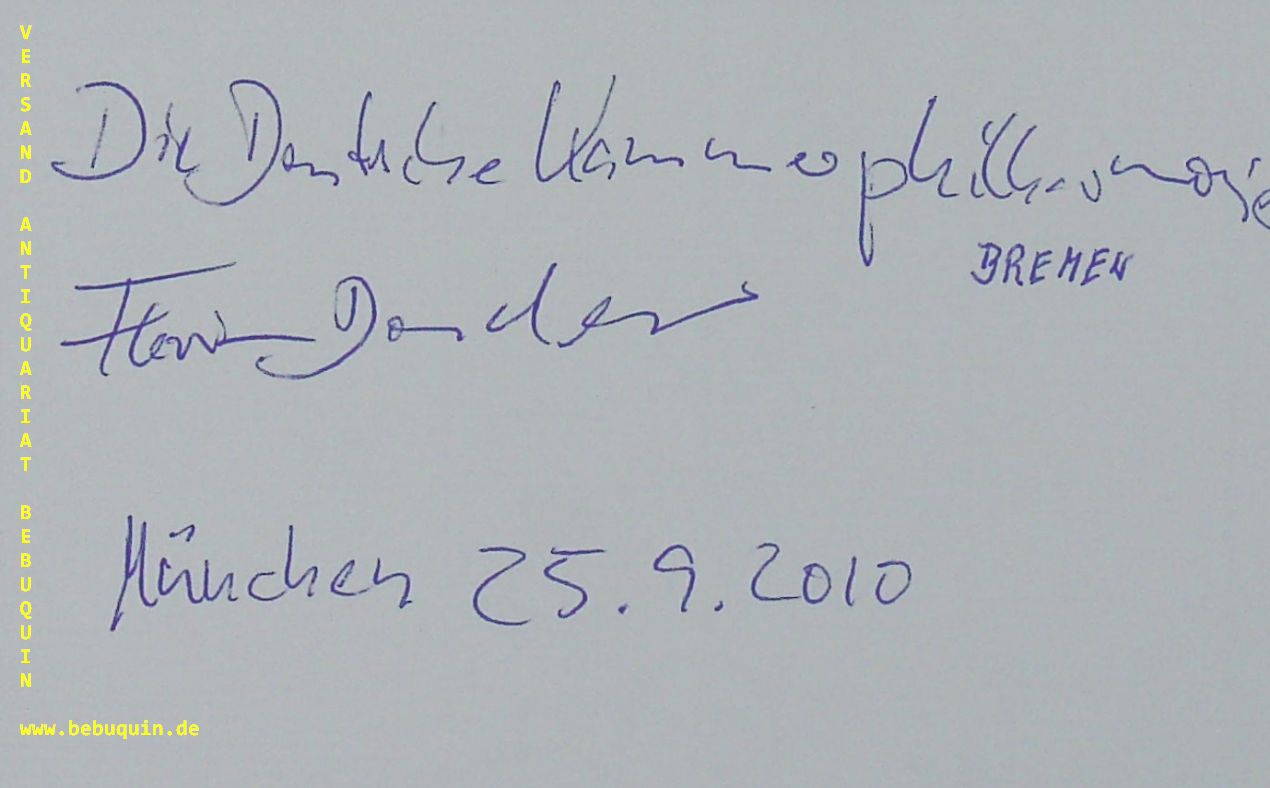 VERSAND ANTIQUARIAT BEBUQUIN
Die Deutsche Kammerphilharmonie
BREMEN
Florian Donderer
München 25.9.2010
www.bebuquin.de